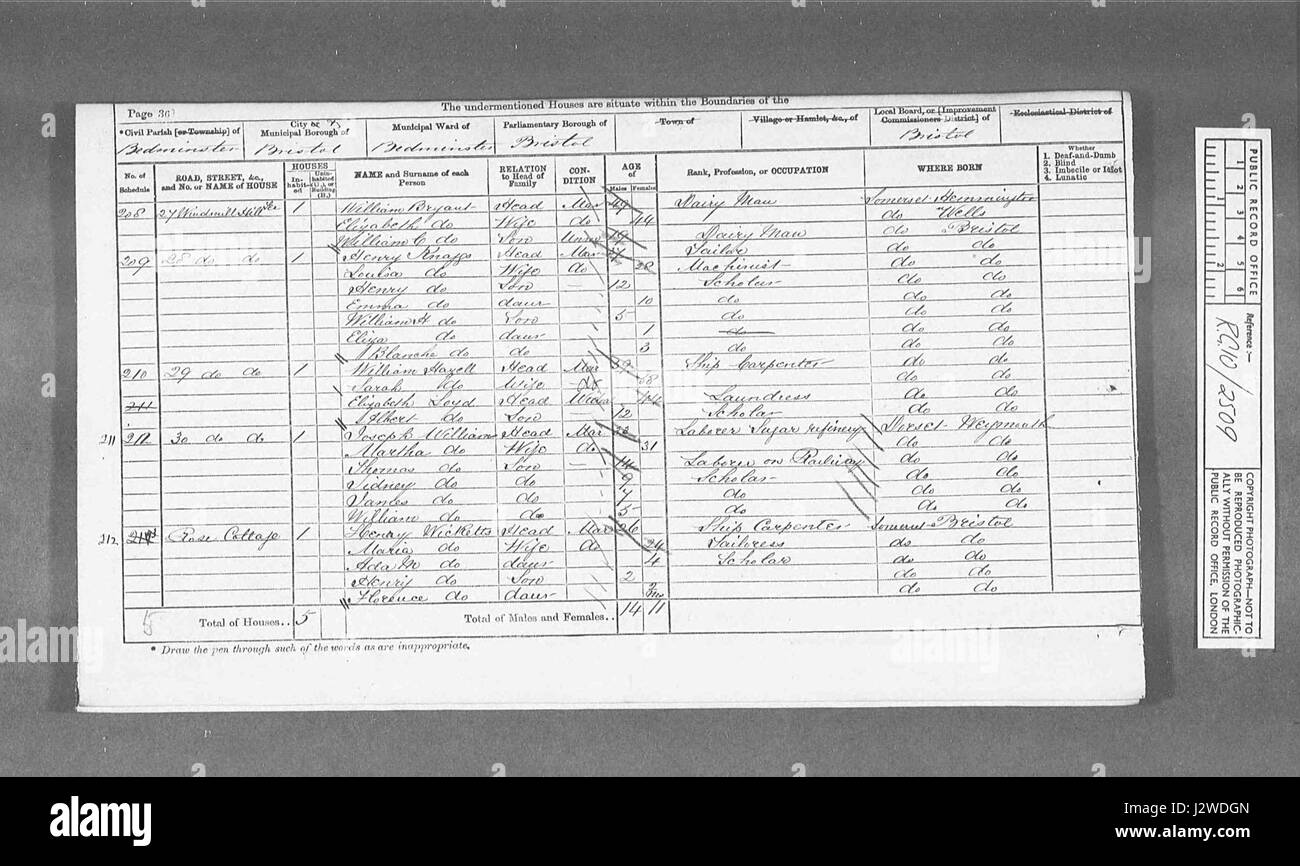 The undermentioned Houses are situate within the Boundaries of the
Page 36
* Civil Parish [or Township] of
Bedminster
City or
Municipal Borough of
Bristol
Municipal Ward of
Bedminster
Parliamentary Borough of
Bristol
Town of
Village or Hamlet, &c., of
Local Board, or [Improvement
Commissioners District] of
Bristol
Ecclesiastical District of
No. of Schedule
ROAD, STREET, &c., and No. or NAME of HOUSE
HOUSES
In-habited
Unin-habited (U.), or Building (B.)
NAME and Surname of each Person
RELATION to Head of Family
CON-DITION
AGE of
Males
Females
Rank, Profession, or OCCUPATION
WHERE BORN
Whether
1. Deaf-and-Dumb
2. Blind
3. Imbecile or Idiot
4. Lunatic
208 27 Windmill Hill 1 William Bryant Head Mar 49 Dairy Man Somerset
Elizabeth do Wife do 44 do Wells
William C do Son 19 Dairy Man do Bristol
209 28 do do 1 Henry Knapp Head Mar Tailor do do
Louisa do Wife do Machinist do do
Henry do Son — 12 Scholar do do
Emma do daur 10 do do do
William H do Son 5 do do do
Eliza do daur 1 do do do
Blanche do do 3 do do do
210 29 do do 1 William Hazell Head Mar Ship Carpenter do do
Sarah do Wife do do do
211 Elizabeth Loyd Head Laundress do do
Albert do Son — 12 Scholar do do
211 212 30 do do 1 Joseph Williams Head Mar Laborer Sugar refinery Dorset Weymouth
Martha do Wife do 31 do do
Thomas do Son — 14 Laborer on Railway do do
Sidney do do 9 Scholar do do
James do do 7 do do do
William do do 5 do do do
212 Rose Cottage 1 Henry Ricketts Head Mar 26 Ship Carpenter Somerset Bristol
Maria do Wife do 24 Tailoress do do
Ada M do daur 4 Scholar do do
Henry do Son 2 do do
Florence do daur 2 do do
5 Total of Houses.. 5 Total of Males and Females.. 14 11
* Draw the pen through such of the words as are inappropriate.
PUBLIC RECORD OFFICE
1 2 3 4 5 6
1 2
Reference :—
RG10/2509
COPYRIGHT PHOTOGRAPH—NOT TO
BE REPRODUCED PHOTOGRAPHIC-
ALLY WITHOUT PERMISSION OF THE
PUBLIC RECORD OFFICE, LONDON
alamy
a
alamy
Image ID: J2WDGN
www.alamy.com